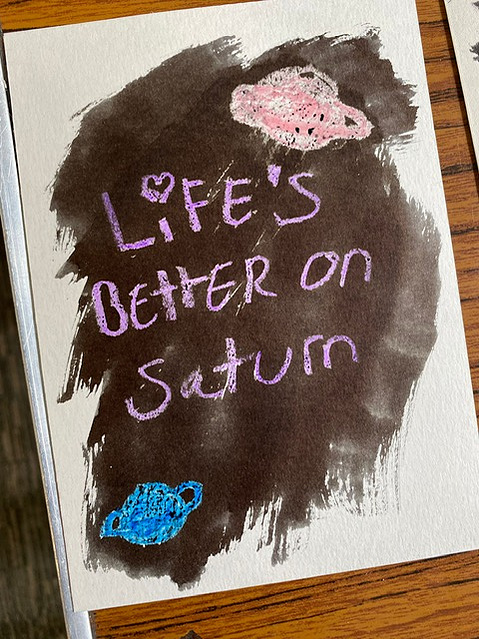 LiFE'S
BEttER on
Saturn